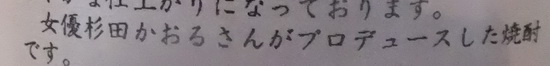 な仕上がりになっております。
女優杉田かおるさんがプロデュースした焼酎
です。